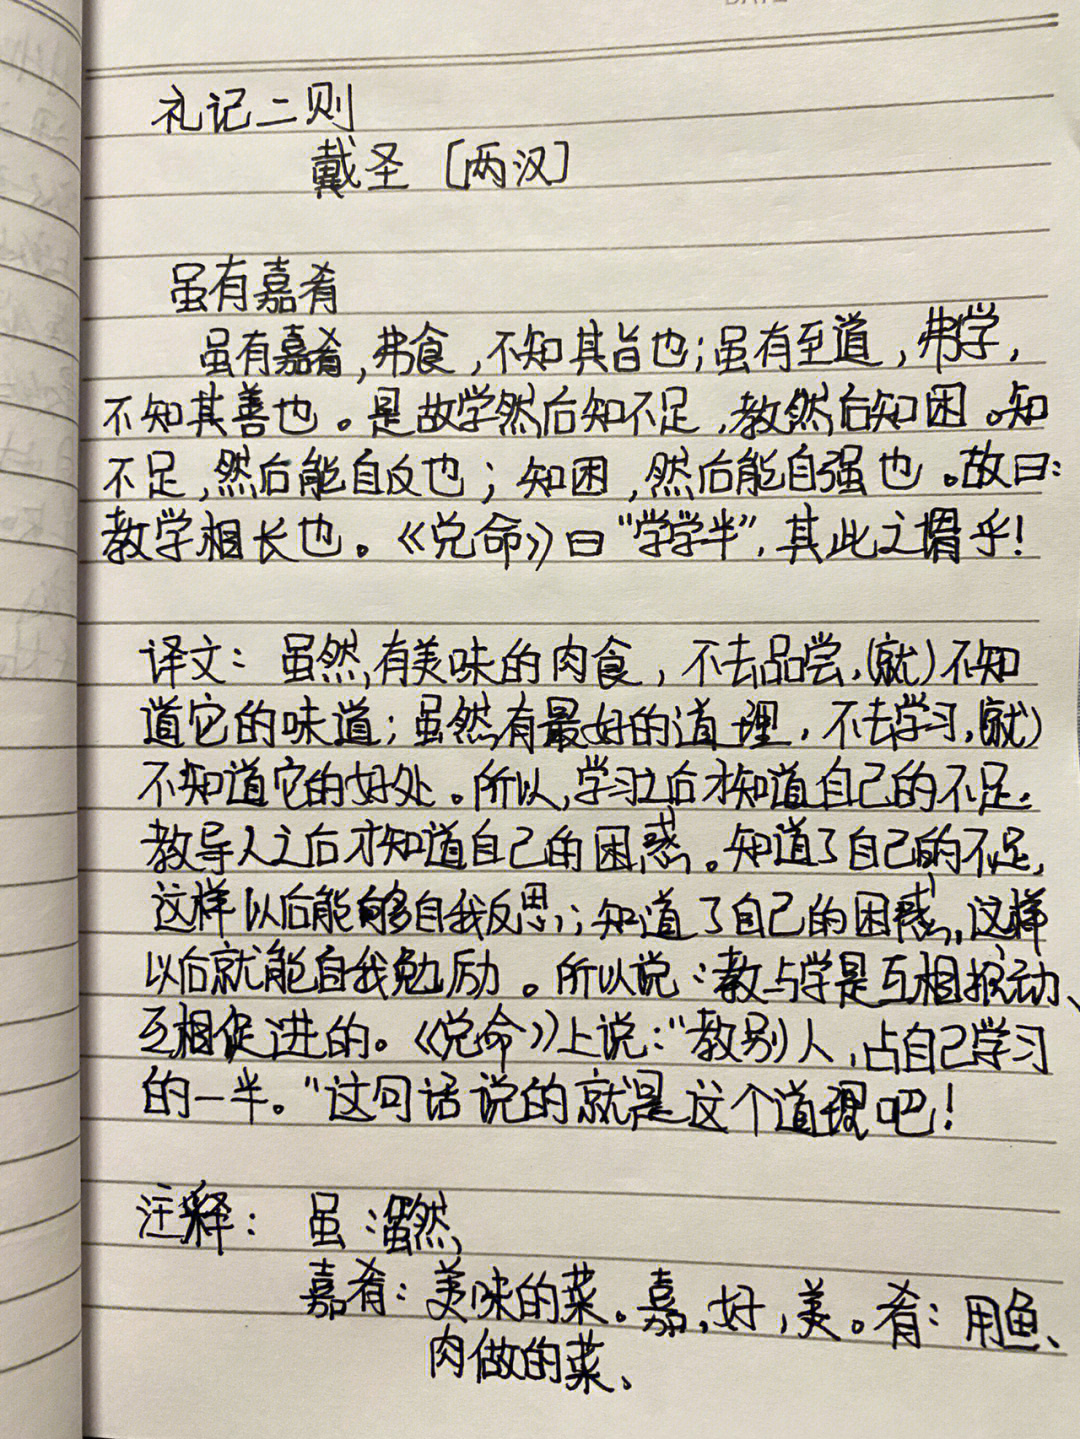 礼记二则
戴圣［两汉］
虽有嘉肴
虽有嘉肴，弗食，不知其旨也；虽有至道，弗学，
不知其善也。是故学然后知不足，教然后知困。知
不足，然后能自反也；知困，然后能自强也。故曰：
教学相长也。《兑命》曰“学学半”，其此之谓乎！
译文：虽然有美味的肉食，不去品尝，（就）不知
道它的味道；虽然有最好的道理，不去学习，（就）
不知道它的好处。所以，学习之后才知道自己的不足。
教导人之后才知道自己的困惑。知道了自己的不足，
这样以后能够自我反思；知道了自己的困惑，这样
以后就能自我勉励。所以说：教与学是互相推动、
互相促进的。《兑命》上说：“教别人，占自己学习
的一半。”这句话说的就是这个道理吧！
注释：虽：虽然
嘉肴：美味的菜。嘉，好，美。肴：用鱼、
肉做的菜、